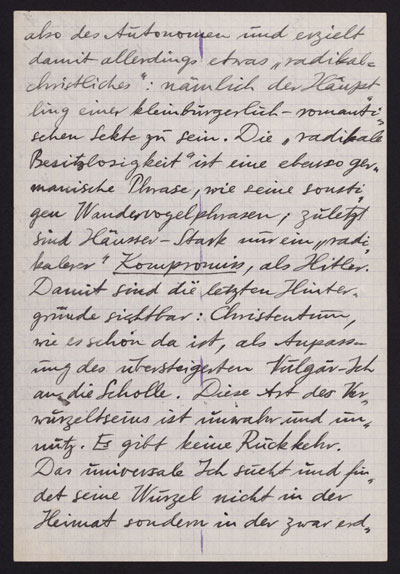 also des Autonomen und erzielt
damit allerdings etwas „radikal=
christliches": nämlich der Häupt
ling einer kleinbürgerlich-romanti=
schen Sekte zu sein. Die „radikale
Besitzlosigkeit" ist eine ebenso ger=
manische Phrase, wie seine sonsti
gen Wandervogelphrasen; zuletzt
sind Häusser-Stark nur ein „radi
kalerer" Kompromiss, als Hitler.
Damit sind die letzten Hinter=
gründe sichtbar: Christentum,
wie es schon da ist, als Anpass=
ung des übersteigerten Vulgär-Ich
an die Scholle. Diese Art des Ver=
wurzeltseins ist unwahr und un=
nutz. Es gibt keine Rückkehr.
Das universale Ich sucht und fin=
det seine Wurzel nicht in der
Heimat sondern in der zwar erd=